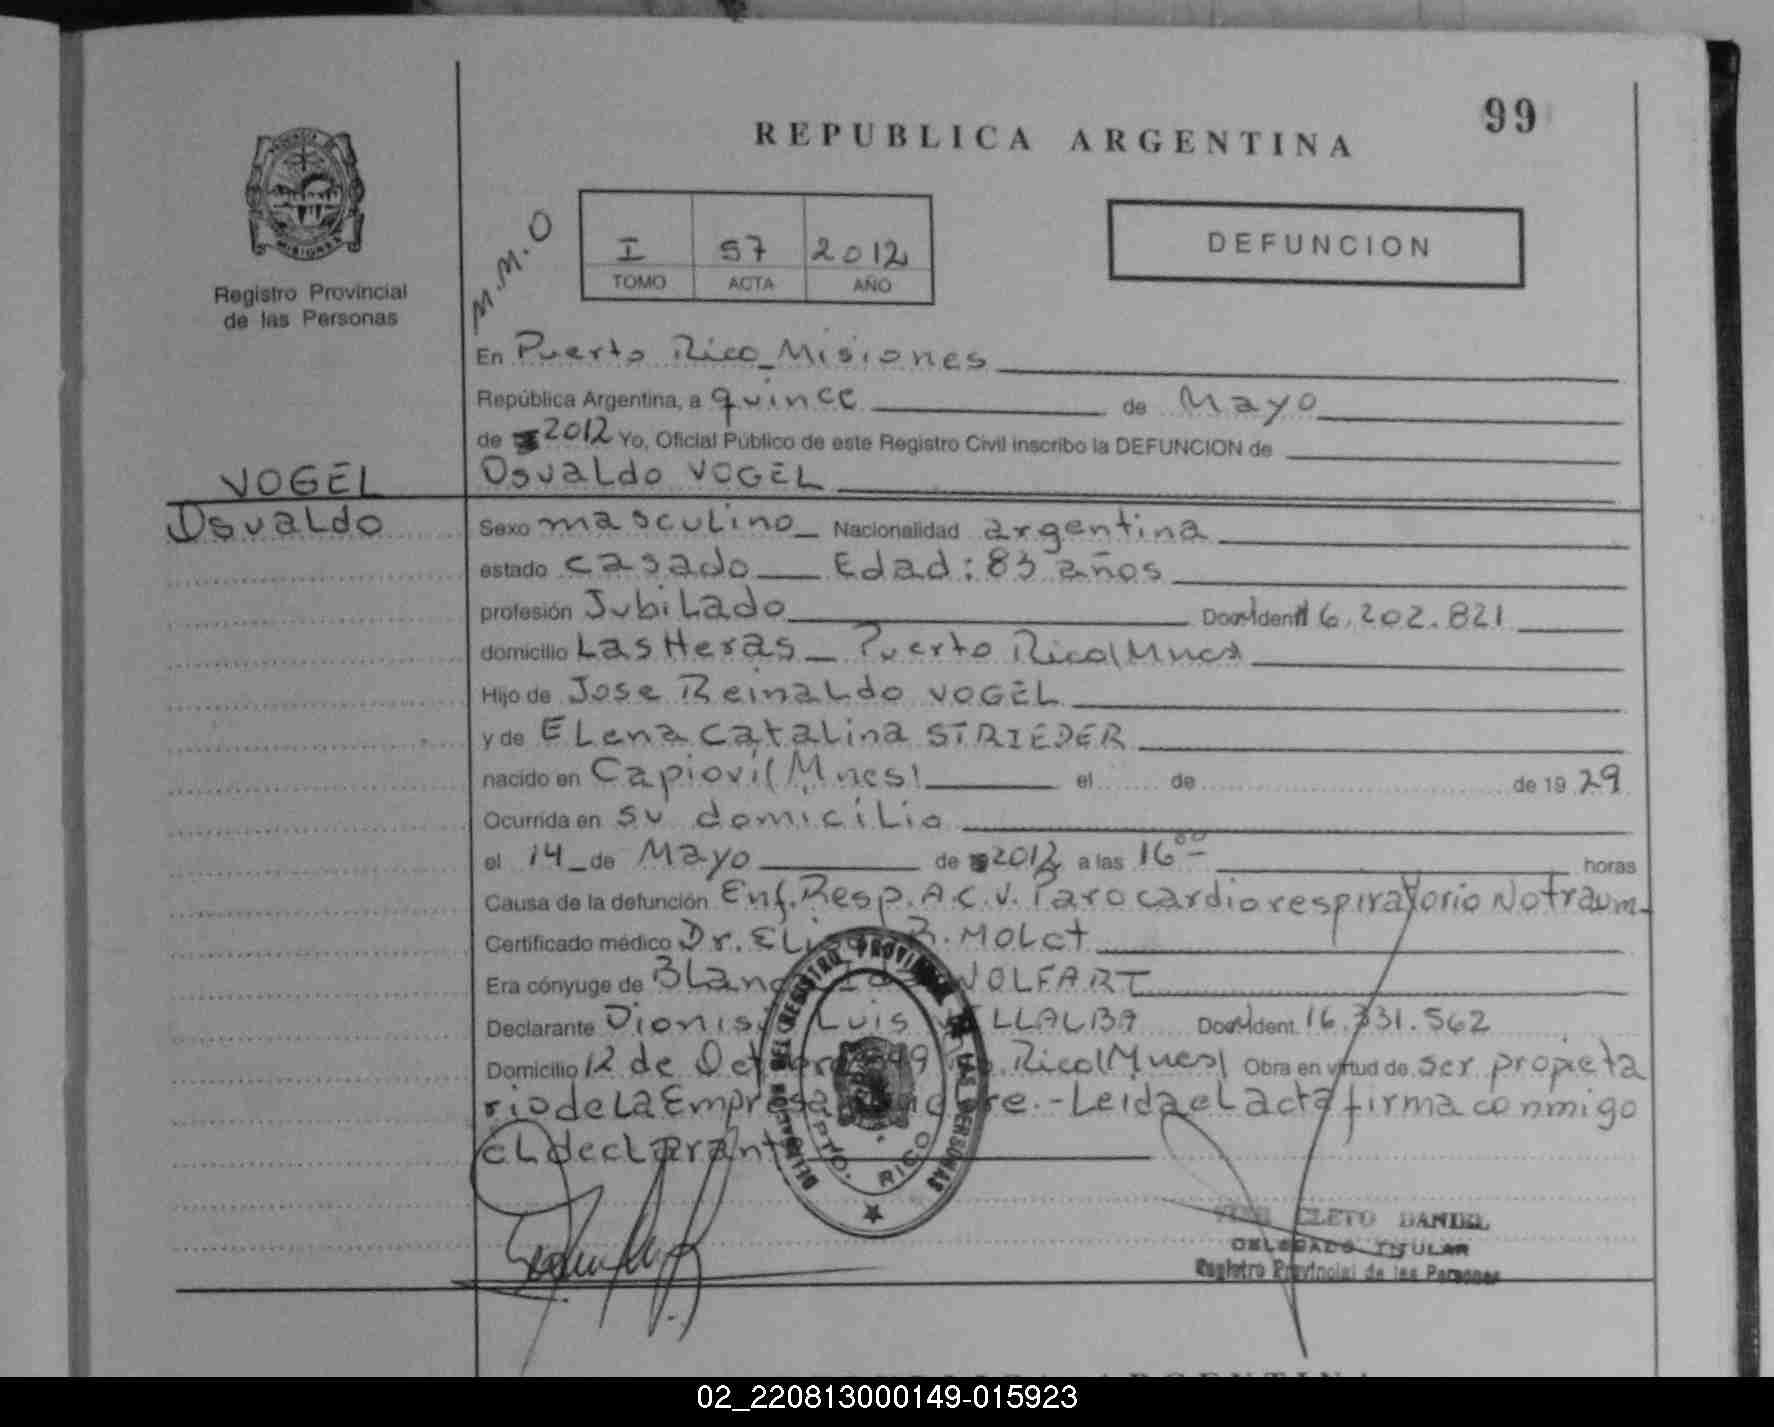 99
REPUBLICA ARGENTINA
MISIONES
Registro Provincial
de las Personas
M.M.O
I 57 2012
TOMO ACTA AÑO
DEFUNCION
En Puerto Rico_Misiones
República Argentina, a quince de Mayo
de 2012 Yo, Oficial Público de este Registro Civil inscribo la DEFUNCION de
VOGEL
Osvaldo VOGEL
Osvaldo
Sexo masculino_ Nacionalidad argentina
estado casado Edad: 83 años
profesión Jubilado Doc. Ident. 6.202.821
domicilio Las Heras_ Puerto Rico(Mnes)
Hijo de Jose Reinaldo VOGEL
y de Elena Catalina STRIEDER
nacido en Capiovi(Mnes) el de de 1929
Ocurrida en su domicilio
el 14_de Mayo de 2012 a las 16 00 horas
Causa de la defunción Enf. Resp. A.C.V. Paro cardiorespiratorio No traum.
Certificado médico Dr. R. Molet
Era cónyuge de WOLFART
Declarante Luis VILLALBA Doc. Ident. 16.331.562
Domicilio 12 de Rico(Mnes) Obra en virtud de ser propieta
rio de la Empresa - Leida el acta firma conmigo
el declarante
DEL REGISTRO PROVINCIAL DE LAS PERSONAS
PTO. RICO
CLETO DANIEL
DELEGADO TITULAR
Registro Provincial de las Personas
REPUBLICA ARGENTINA
02_220813000149-015923